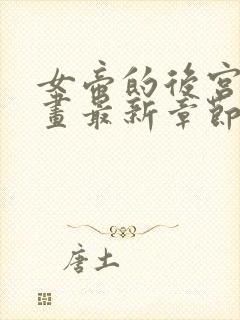 女帝的後宮
畫最新章節
唐土